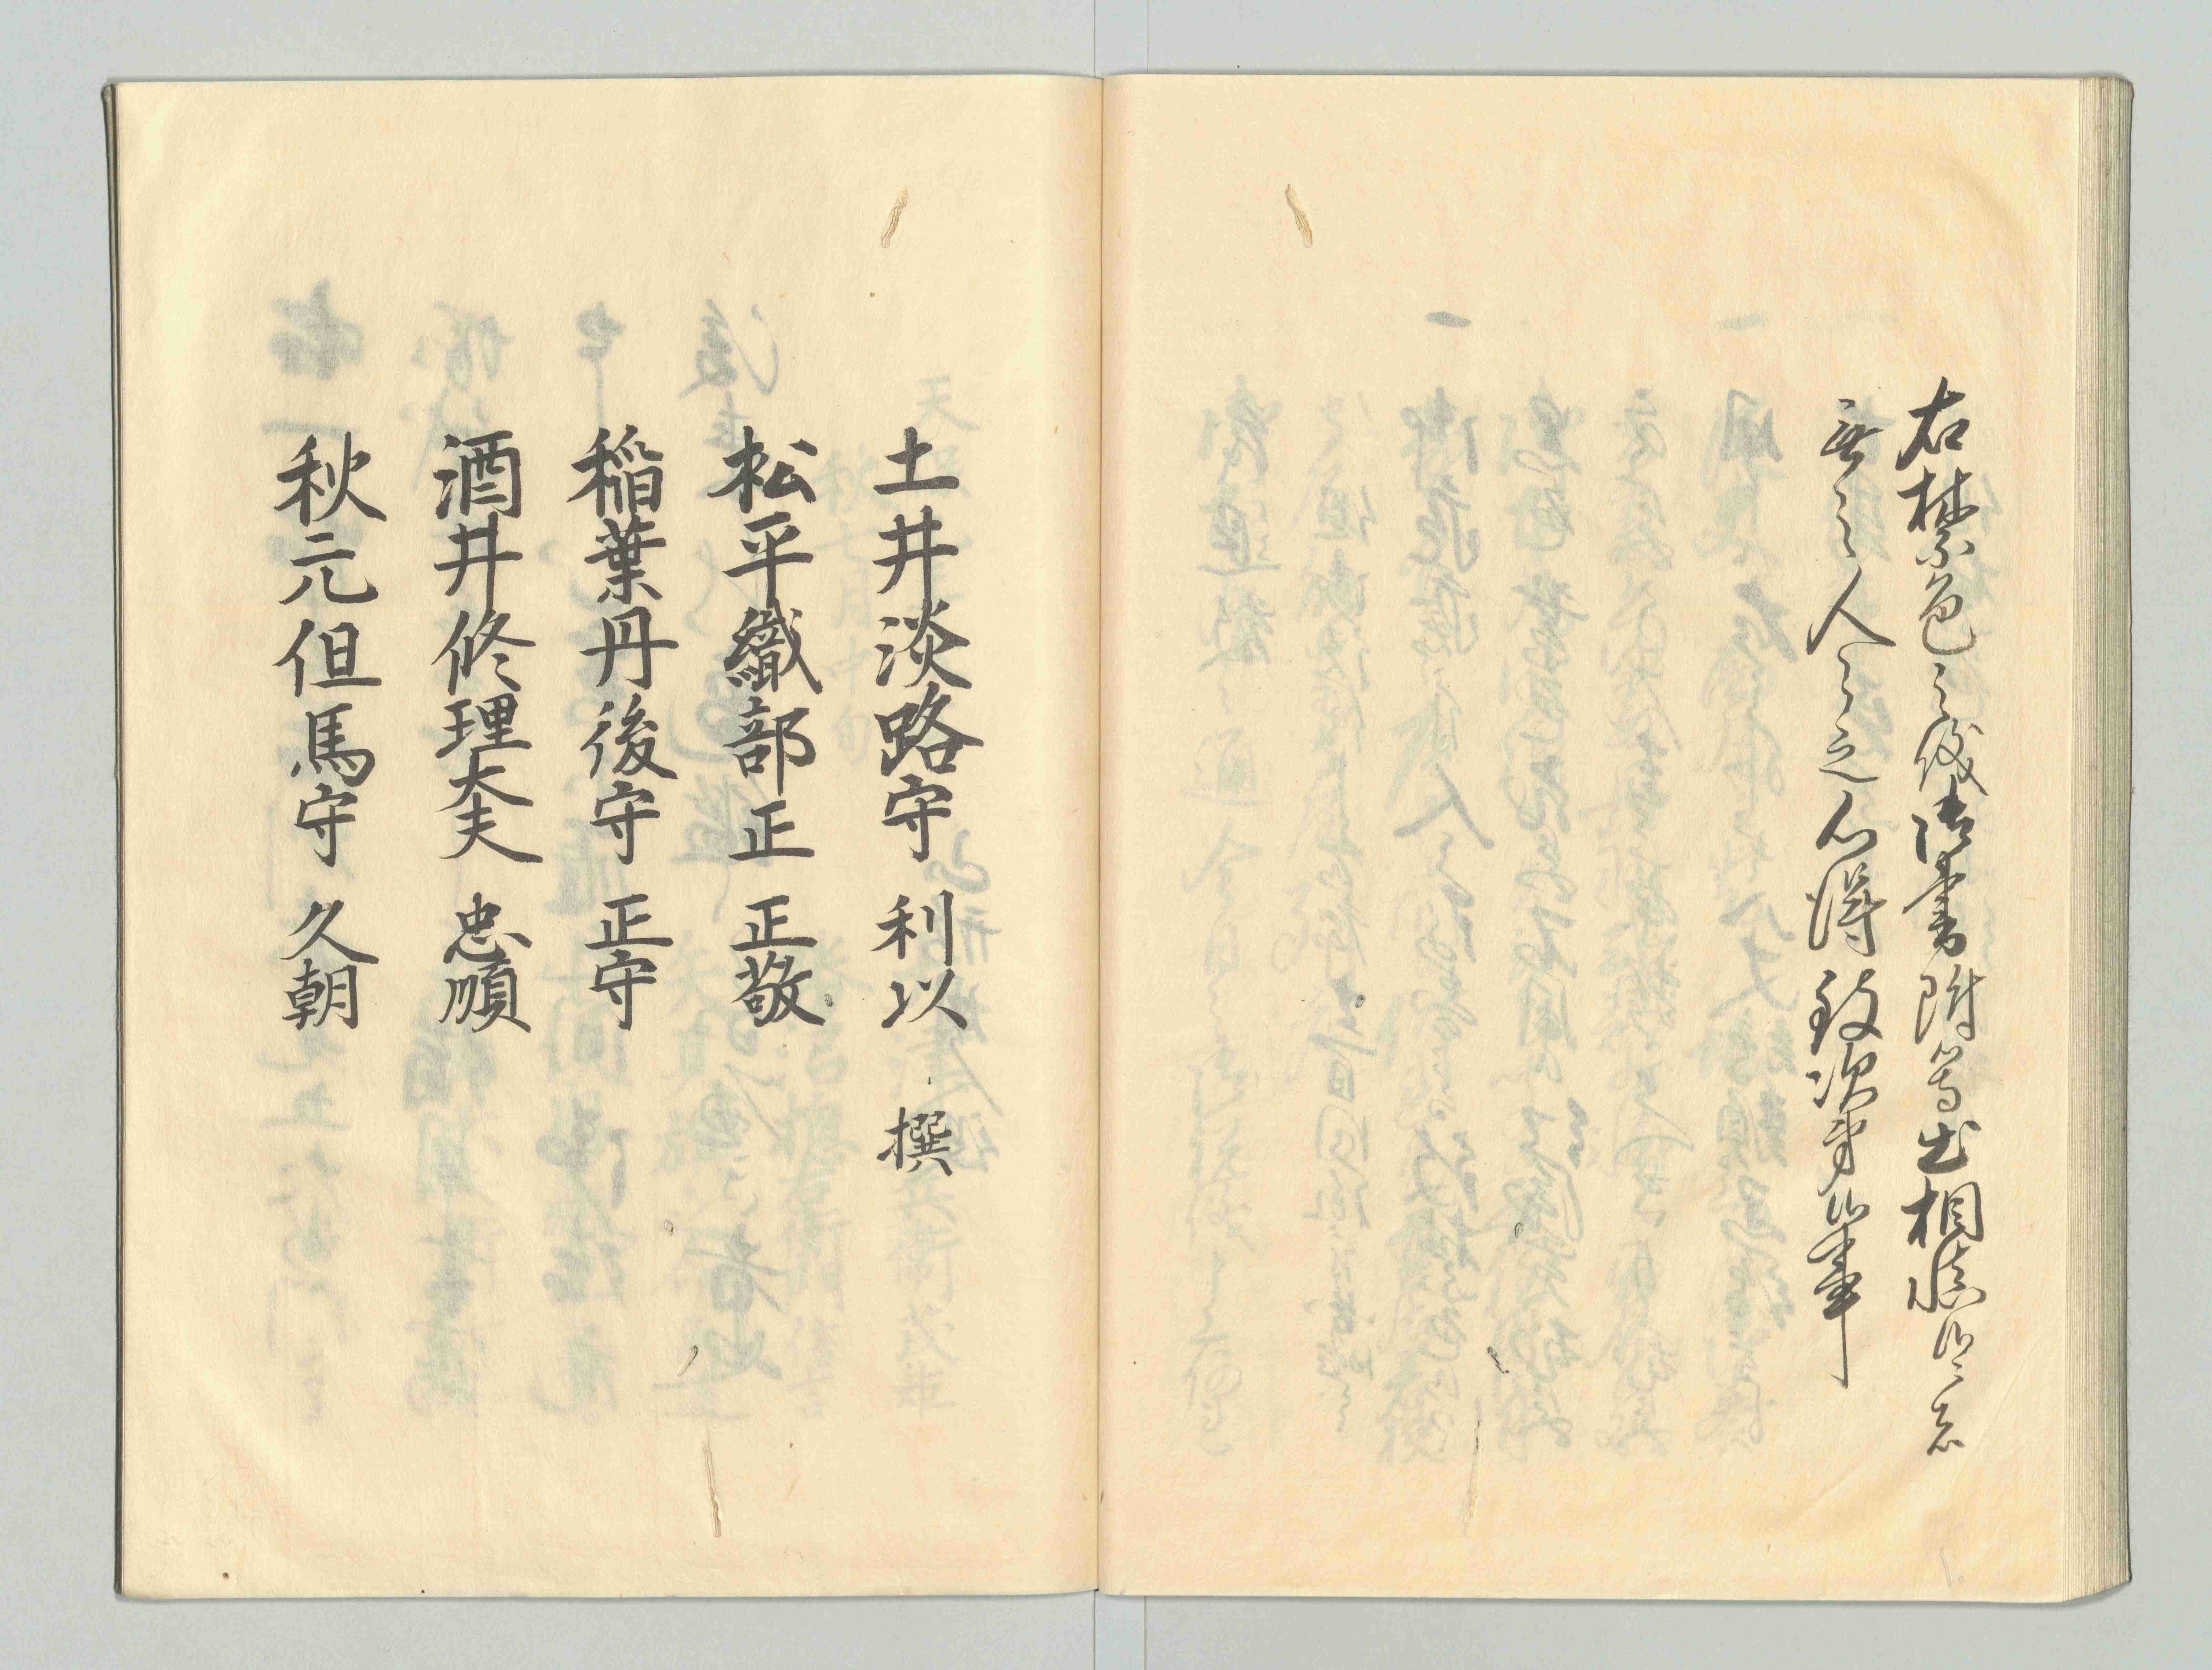 右禁色之儀法書附等出相憶候者
無之人々之心得致次第候事
土井淡路守 利以 撰
松平織部正 正敬
稲葉丹後守 正守
酒井修理大夫 忠順
秋元但馬守 久朝